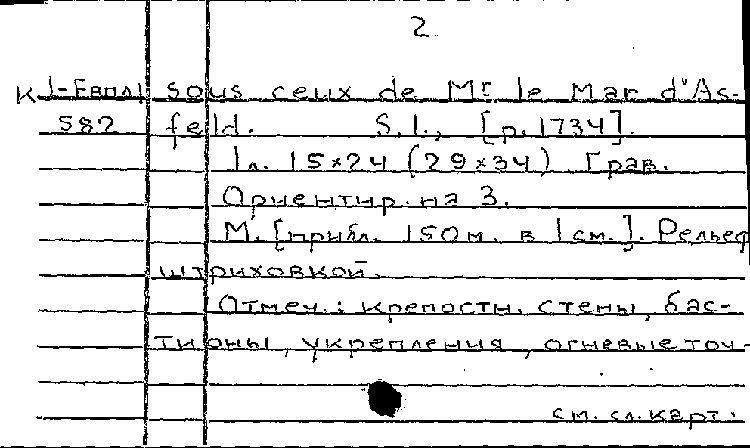 2
К 1-Евпл1 sous ceux de Mr le Mar d'As-
582 feld. S.l., [p.1734].
1л. 15×24 (29×34) Грав.
Ориентир. на З.
М. [прибл. 150м. в 1см.]. Рельеф
штриховкой.
Отмеч.: крепостн. стены, бас-
тионы, укрепления, огневые точ-
см. сл. карт.